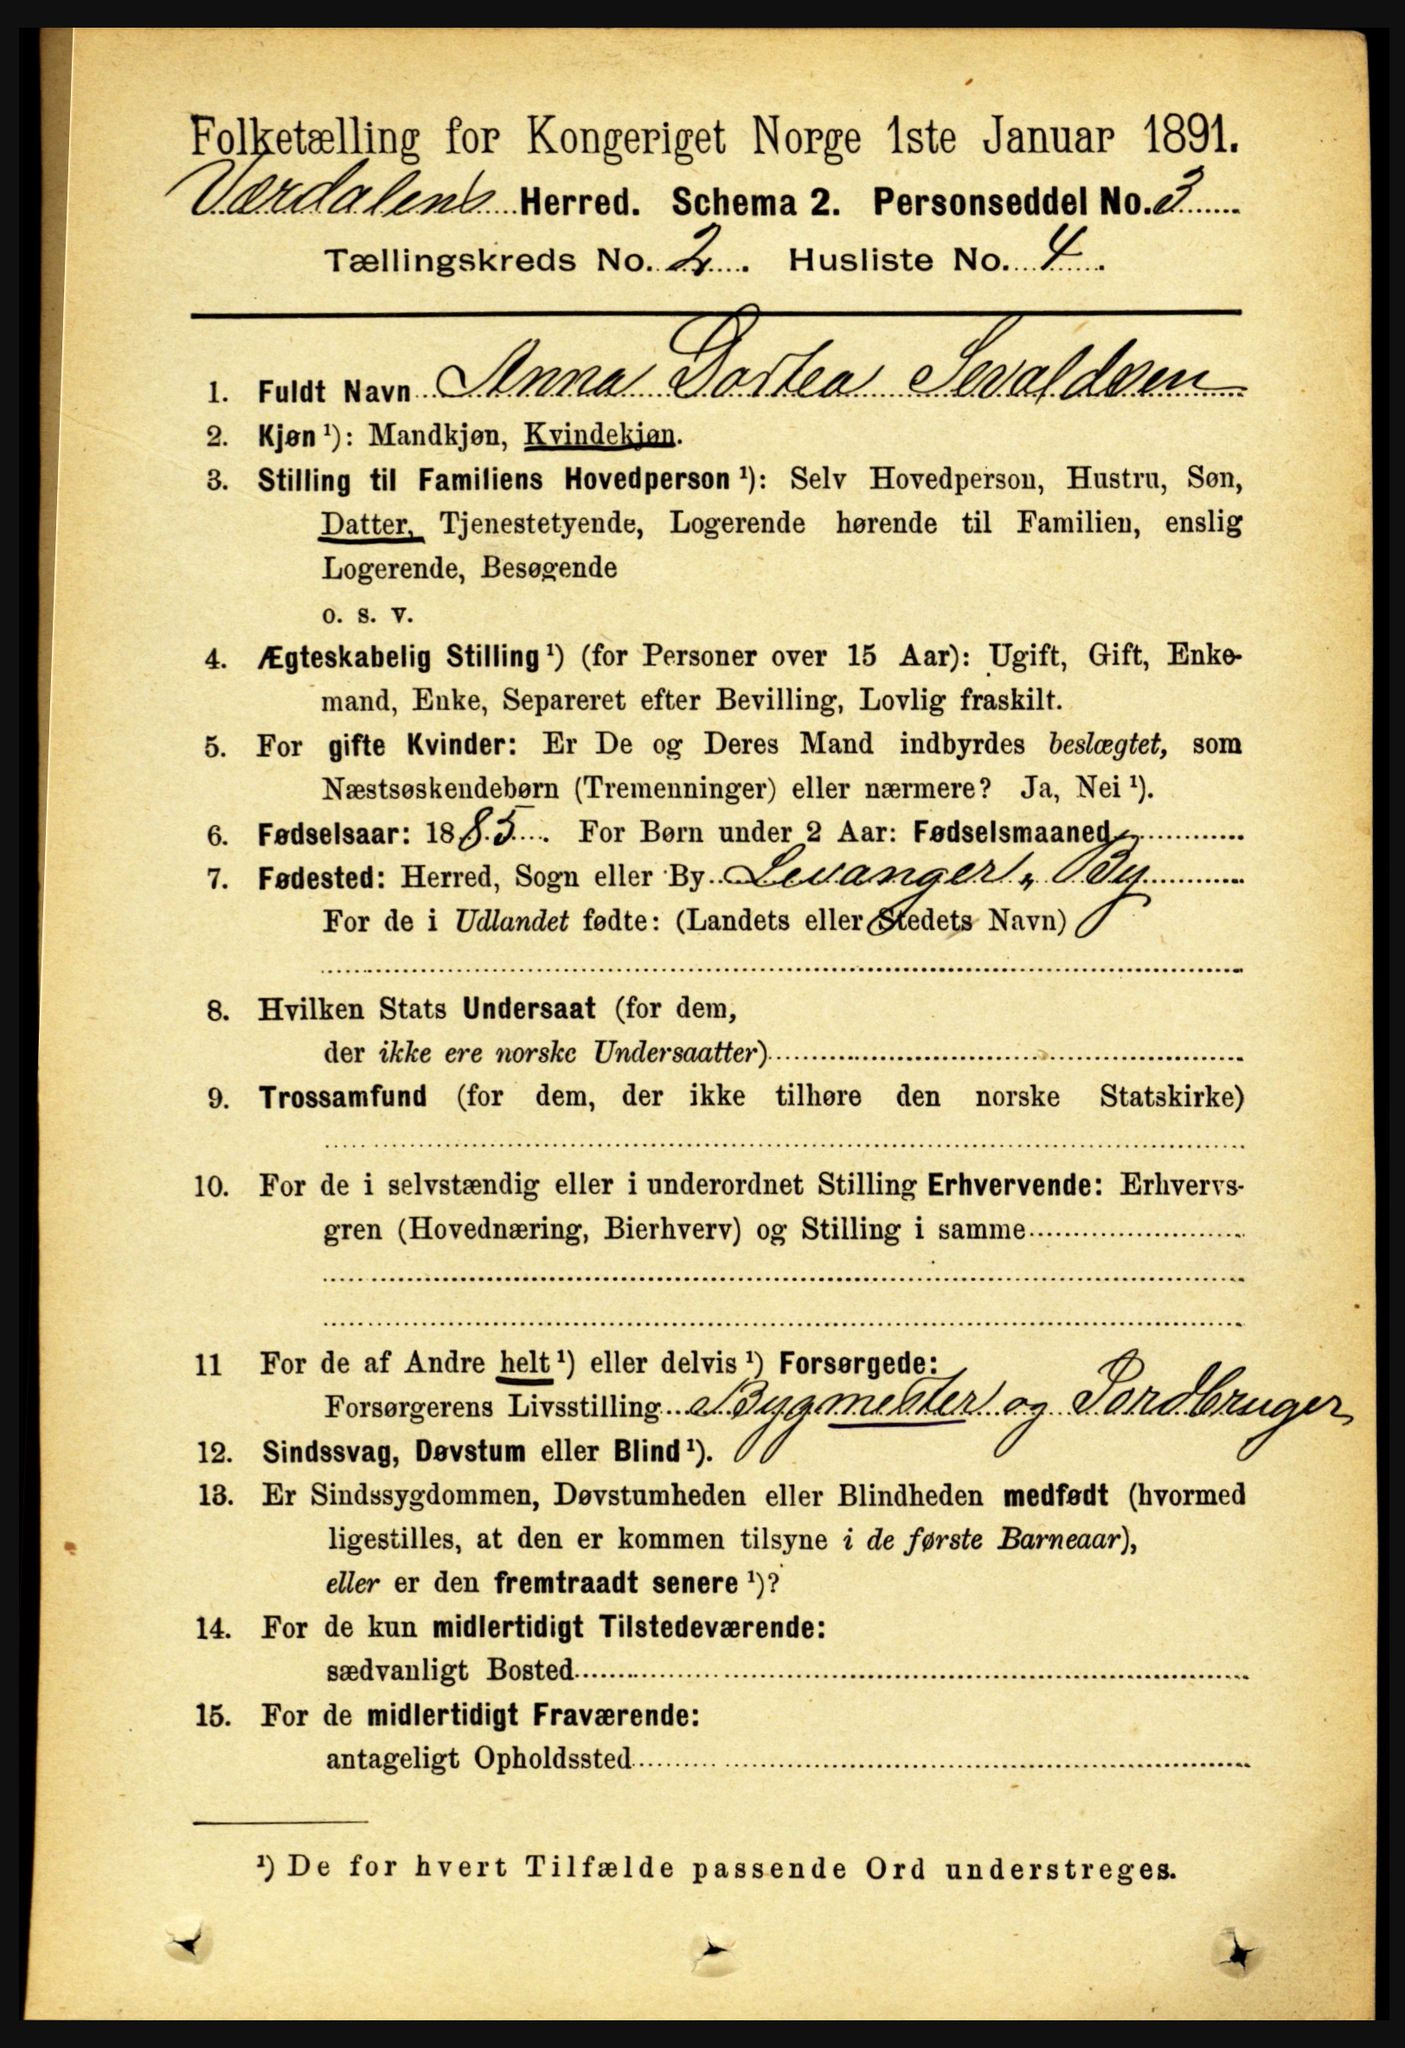 Folketælling for Kongeriget Norge 1ste Januar 1891.
Værdalens Herred. Schema 2. Personseddel No. 3
Tællingskreds No. 2. Husliste No. 4.
1. Fuldt Navn Anna Dortea Sevaldsen
2. Kjøn ¹): Mandkjøn, Kvindekjøn.
3. Stilling til Familiens Hovedperson ¹): Selv Hovedperson, Hustru, Søn,
Datter, Tjenestetyende, Logerende hørende til Familien, enslig
Logerende, Besøgende
o. s. v.
4. Ægteskabelig Stilling ¹) (for Personer over 15 Aar): Ugift, Gift, Enke-
mand, Enke, Separeret efter Bevilling, Lovlig fraskilt.
5. For gifte Kvinder: Er De og Deres Mand indbyrdes beslægtet, som
Næstsøskendebørn (Tremenninger) eller nærmere? Ja, Nei ¹).
6. Fødselsaar: 1885. For Børn under 2 Aar: Fødselsmaaned
7. Fødested: Herred, Sogn eller By Levanger By
For de i Udlandet fødte: (Landets eller Stedets Navn)
8. Hvilken Stats Undersaat (for dem,
der ikke ere norske Undersaatter)
9. Trossamfund (for dem, der ikke tilhøre den norske Statskirke)
10. For de i selvstændig eller i underordnet Stilling Erhvervende: Erhvervs-
gren (Hovednæring, Bierhverv) og Stilling i samme
11 For de af Andre helt ¹) eller delvis ¹) Forsørgede:
Forsørgerens Livsstilling Bygmester og Jordbruger
12. Sindssvag, Døvstum eller Blind ¹).
13. Er Sindssygdommen, Døvstumheden eller Blindheden medfødt (hvormed
ligestilles, at den er kommen tilsyne i de første Barneaar),
eller er den fremtraadt senere ¹)?
14. For de kun midlertidigt Tilstedeværende:
sædvanligt Bosted
15. For de midlertidigt Fraværende:
antageligt Opholdssted
¹) De for hvert Tilfælde passende Ord understreges.